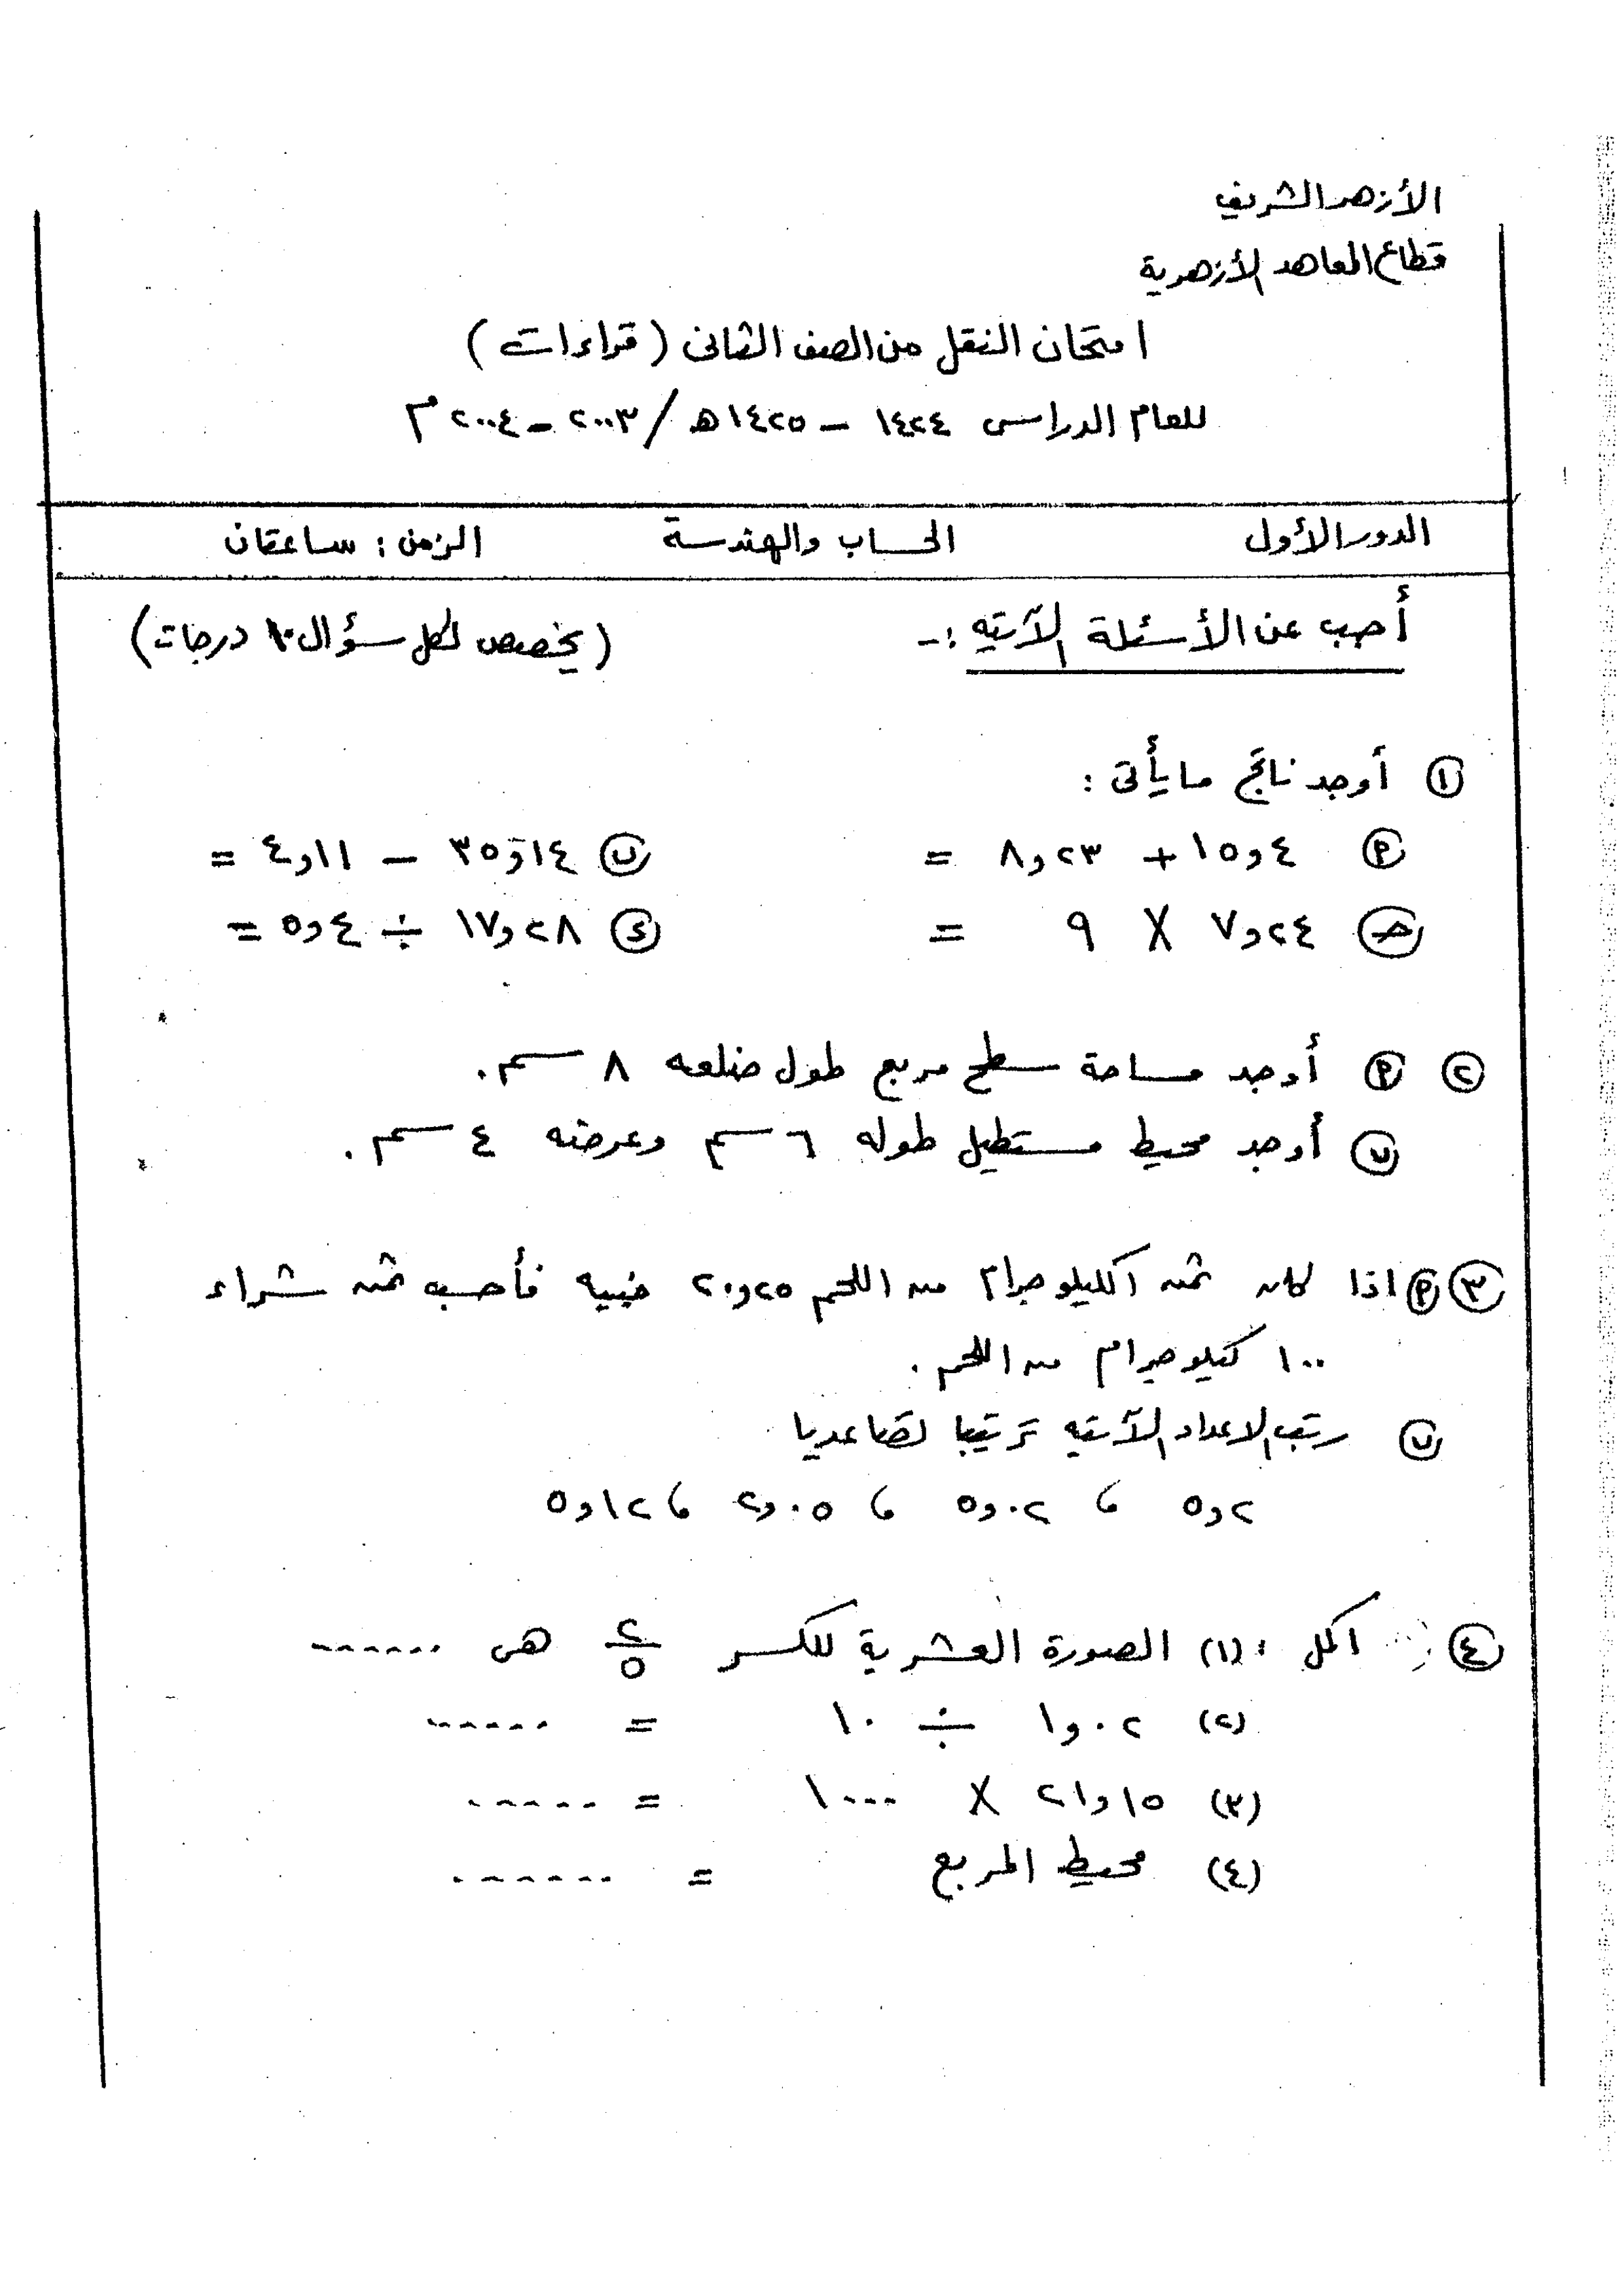 الأزهر الشريف
قطاع المعاهد الأزهرية
امتحان النقل من الصف الثانى (قراءات)
للعام الدراسى ١٤٢٤ – ١٤٢٥هـ / ٢٠٠٣ – ٢٠٠٤ م
الدور الأول الحساب والهندسة الزمن : ساعتان
أجب عن الأسئلة الآتيه :- (يخصص لكل سؤال ١٠ درجات)
① أوجد ناتج ما يأتى :
Ⓟ ٤و١٥ + ٢٣و٨ = ⓑ ١٤و٣٥ – ١١و٤ =
ⓙ ٢٤و٧ × ٩ = ⓓ ٢٨و١٧ ÷ ٤و٥ =
② Ⓟ أوجد مساحة سطح مربع طول ضلعه ٨ سم .
ⓑ أوجد محيط مستطيل طوله ٦ سم وعرضه ٤ سم .
③ Ⓟ اذا كان ثمن الكيلو جرام من اللحم ٢٥و٢٠ جنيه فأحسب ثمن شراء
١٠٠ كيلو جرام من اللحم .
ⓑ رتب الاعداد الآتيه ترتيبا تصاعديا
٢و٥ ، ٠٢و٥ ، ٠٥و٢ ، ١٢و٥
④ اكمل : (١) الصورة العشرية للكسر ٢/٥ هى ......
(٢) ٠٢و١ ÷ ١٠ = ......
(٣) ١٥و٢١ × ١٠٠٠ = ......
(٤) محيط المربع = .......